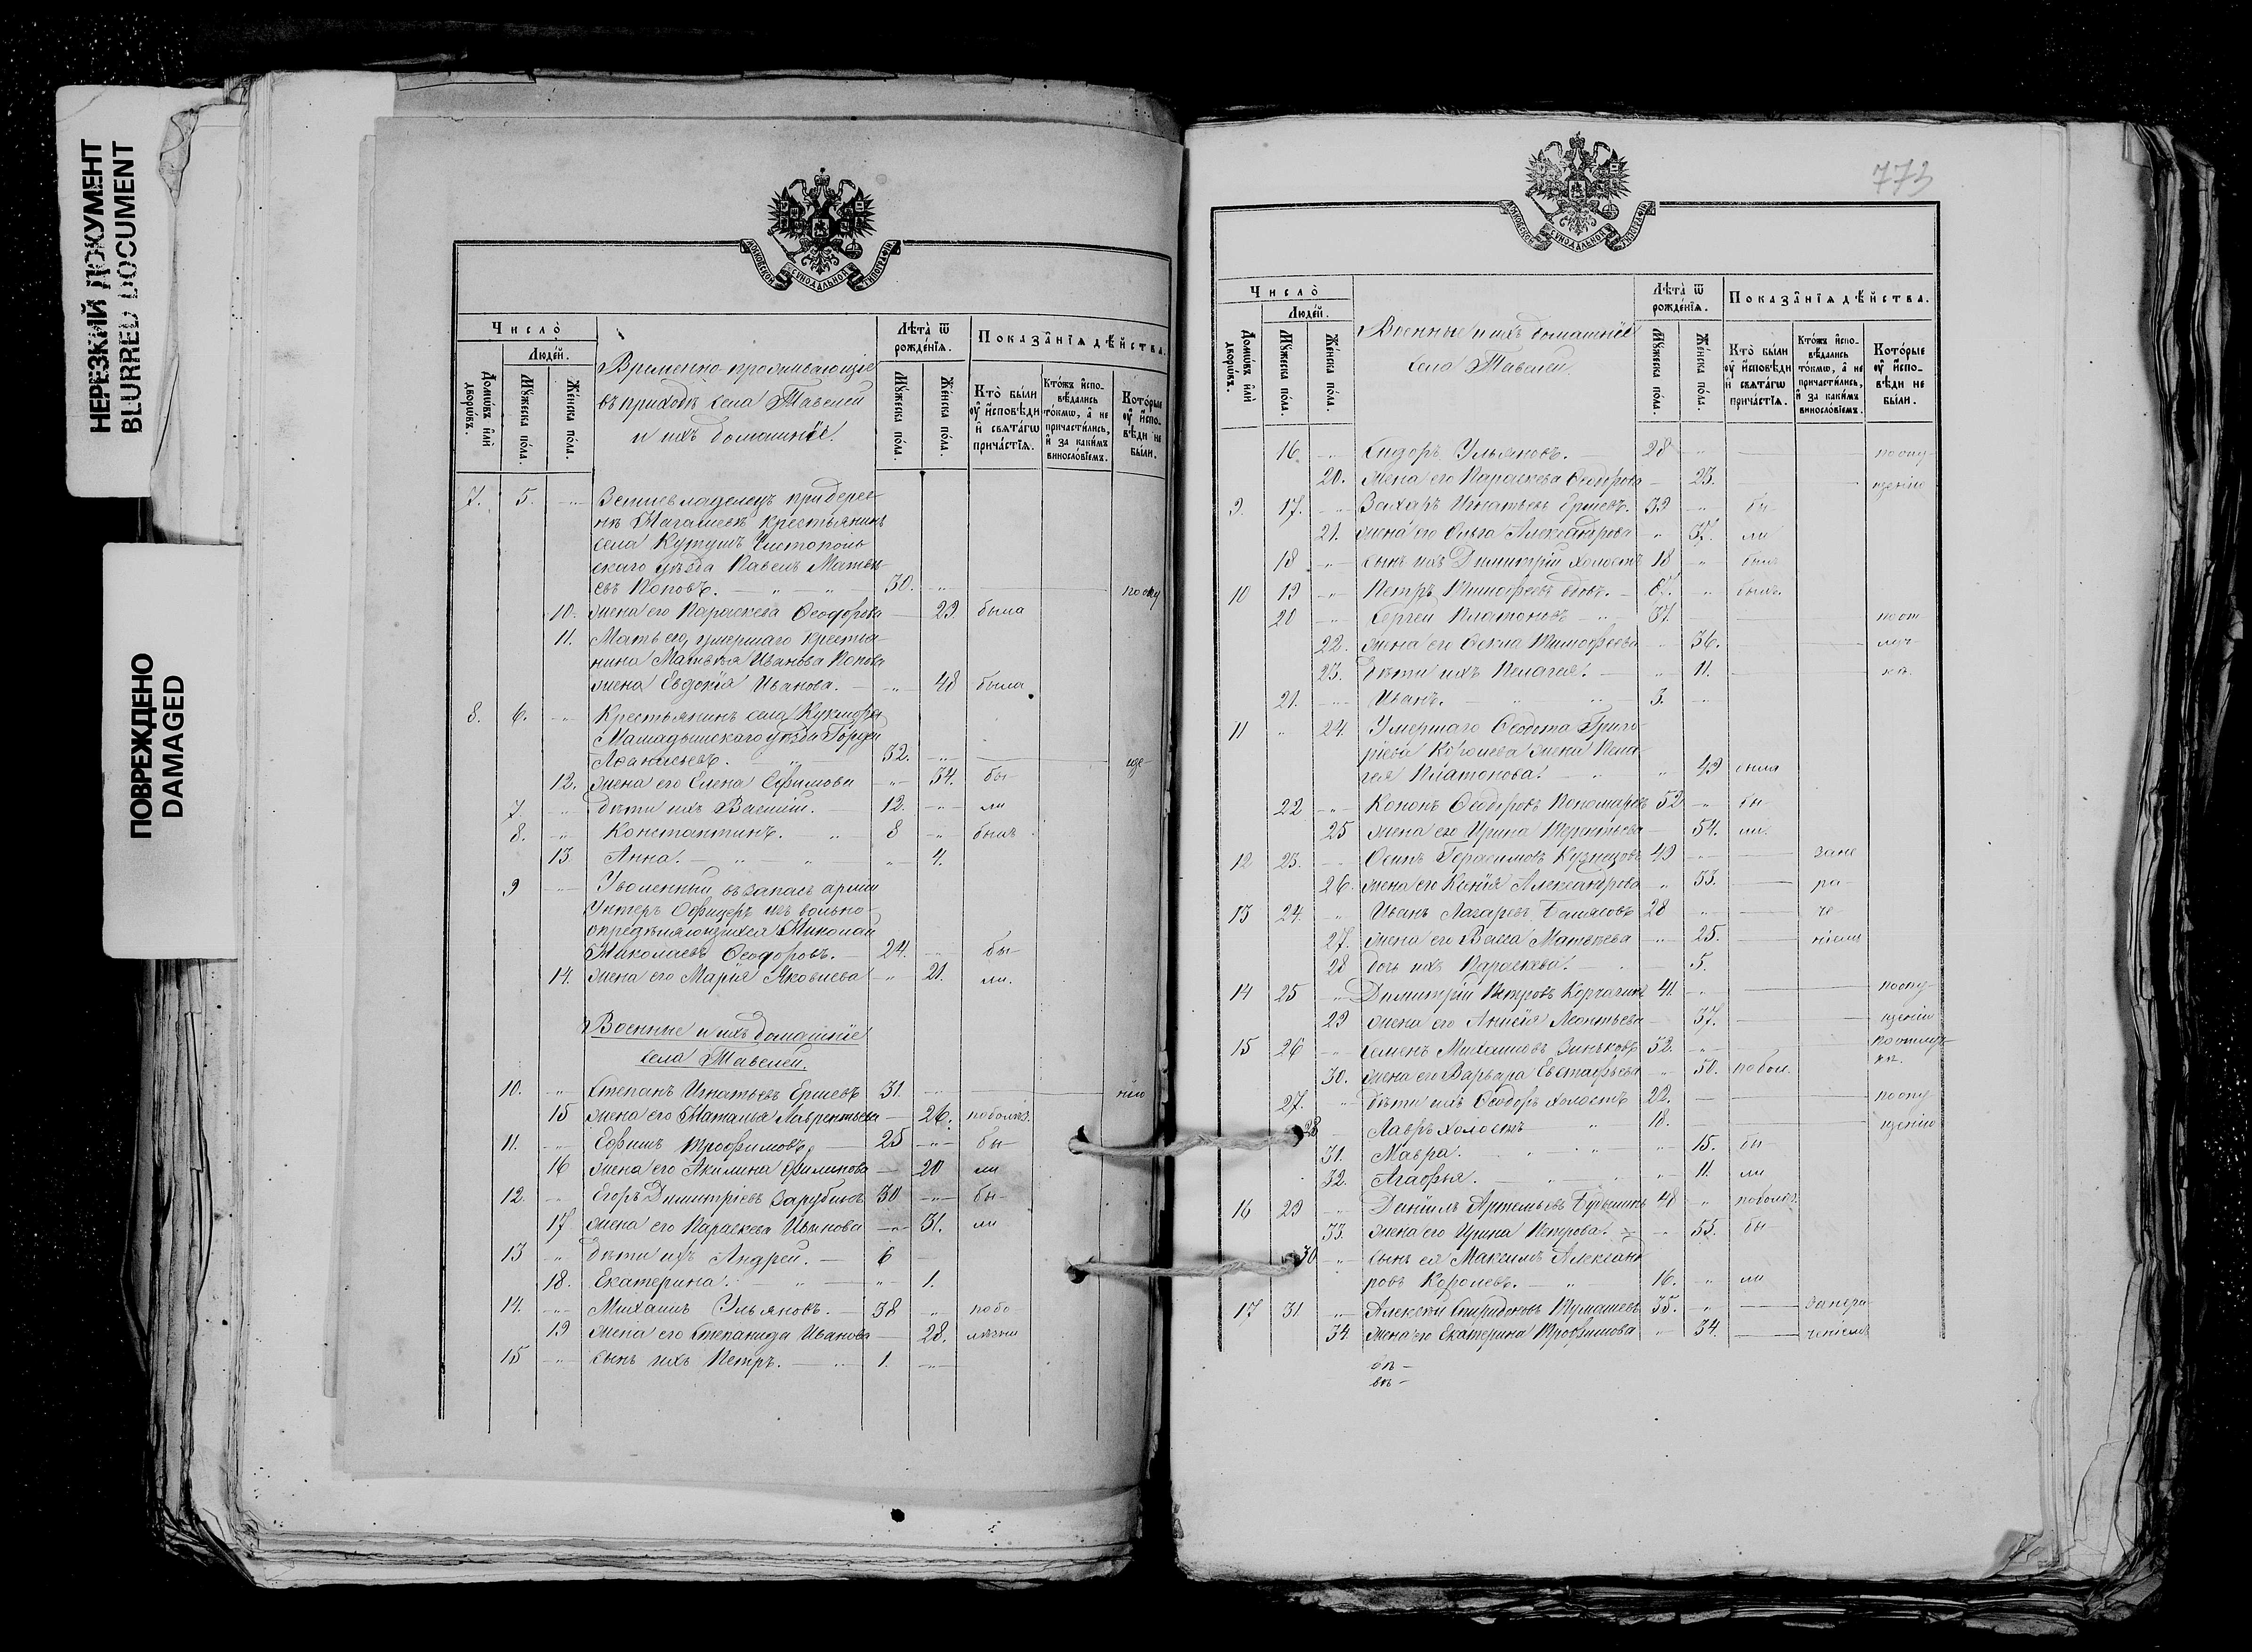 НЕРЕЗКИЙ ДОКУМЕНТ
BLURRED DOCUMENT
ПОВРЕЖДЕНО
DAMAGED
МОСКОВСКОЙ СѴНОДАЛЬНОЙ ТИПОГРАФІИ
Число̀
Людéй.
Домѡ́въ и҆лѝ дворѡ́въ.
Мꙋ́жеска по́ла.
Же́нска по́ла.
Временно проживающіе
въ приходѣ села Тавелей
и ихъ домашніе.
Лѣта̀ ѿ рождéнїѧ.
Мꙋ́жеска по́ла.
Же́нска по́ла.
Показа̑нїѧ дѣ́йства.
Кто̀ бы́ли ᲂу҆ и҆́сповѣди и҆ свѧта́гѡ прича́стїѧ.
Кто́жъ и҆спо-вѣ́дались то́кмѡ, а҆ не причасти́лись, и҆ за каки́мъ винослóвїемъ.
Кото́рые ᲂу҆ и҆спо-вѣди не бы́ли.
7. 5. Землевладелецъ при дерев-
нѣ крестьянинъ
села Кутушъ Чистополь-
скаго уѣзда Павелъ Матвѣ-
евъ Поповъ. 30. по опу
10. жена его Параскева Ѳеодорова 29. была
11. Мать его, умершаго крестья-
нина Матвѣя Иванова Попова
жена Евдокія Иванова. 48 была
8. 6. Крестьянинъ села Кукмора
Мамадышскаго уѣзда Гордей
32. ще-
12. жена его Елена Ефимова 34. бы-
7. дѣти ихъ Василій. 12. ли
8. Константинъ. 8 былъ
13 Анна. 4.
9 Уволенный въ запасъ арміи
Унтеръ Офицеръ изъ вольно-
опредѣляющихся Николай
Николаевъ Ѳеодоровъ. 24. бы-
14. жена его Марія Яковлева 21. ли.
Военные и ихъ домашніе
села Тавелей.
10. Степанъ Игнатьевъ Ершевъ 31. нію
15 жена его Наталья Лаврентьева 26. по болѣз.
11. Ефимъ Трофимовъ. 25 бы-
16 жена его Акилина Филипова 20 ли
12. Егоръ Димитріевъ Зарубинъ 30 бы-
17 жена его Параскева Иванова 31. ли
13 дѣти ихъ Андрей. 6
18. Екатерина. 1.
14. Михаилъ Ульяновъ. 38 по бо-
19 жена его Степанида Иванова 28. лѣзни
15 сынъ ихъ Петръ. 1.
773
МОСКОВСКОЙ СѴНОДАЛЬНОЙ ТИПОГРАФІИ
Число̀
Людéй.
Домѡ́въ и҆лѝ дворѡ́въ.
Мꙋ́жеска по́ла.
Же́нска по́ла.
Военные и ихъ домашніе
села Тавелей.
Лѣта̀ ѿ рождéнїѧ.
Мꙋ́жеска по́ла.
Же́нска по́ла.
Показа̑нїѧ дѣ́йства.
Кто̀ бы́ли ᲂу҆ и҆́сповѣди и҆ свѧта́гѡ прича́стїѧ.
Кто́жъ и҆спо-вѣ́дались то́кмѡ, а҆ не причасти́лись, и҆ за каки́мъ винослóвїемъ.
Кото́рые ᲂу҆ и҆спо-вѣди не бы́ли.
16. Сидоръ Ульяновъ. 28 по опу-
20. жена его Параскева Ѳеодорова 23. щенію
9. 17. Захаръ Игнатьевъ Ершевъ. 39 бы-
21. жена его Ольга Александрова 37. ли
18 сынъ ихъ Димитрій холостъ 18 былъ
10 19 Петръ Тимофеевъ вдовъ. былъ.
20 Сергей Платоновъ 37. по от
22. жена его Ѳекла Тимофеева 36. луч-
23. дѣти ихъ Пелагея. 11. кѣ.
21. Иванъ. 3.
11 24. Умершаго Ѳедота Григо-
ріева Королева жена Пела-
гея Платонова. 49 была
22 Кононъ Ѳеодоровъ Пономаревъ 52 бы-
25 жена его Ирина Терентьева 54. ли.
12 23. Осипъ Герасимовъ Кузнецовъ 49 за не
26. жена его Ксенія Александрова 53. ра-
13 24. Иванъ Лазаревъ 28 че-
27. жена его Васса Матвѣева 25. ніемъ
28 дочь ихъ Параскева. 5.
14 25 Димитрій Петровъ Корчагинъ 41. по опу-
29 жена его Анисія Леонтьева 37. щенію
15 26 Семенъ Михайловъ Зиньковъ 52. по отлуч-
кѣ.
30. жена его Варвара Евстафьева 50. по бол.
27. дѣти ихъ Ѳеодоръ холостъ 22. по опу-
28 Лавръ холостъ 18. щенію
31. Мавра. 15. бы-
32. Агафья. 11. ли
16 29 Даніилъ Артемьевъ 48 по болѣз.
33. жена его Ирина Петрова. 53. бы-
30 сынъ ея Максимъ Александ-
ровъ Королевъ. 16. ли
17 31 Алексѣй Спиридоновъ Тумашевъ 35. за нера-
34 жена его Екатерина Трофимова 34. ченіемъ